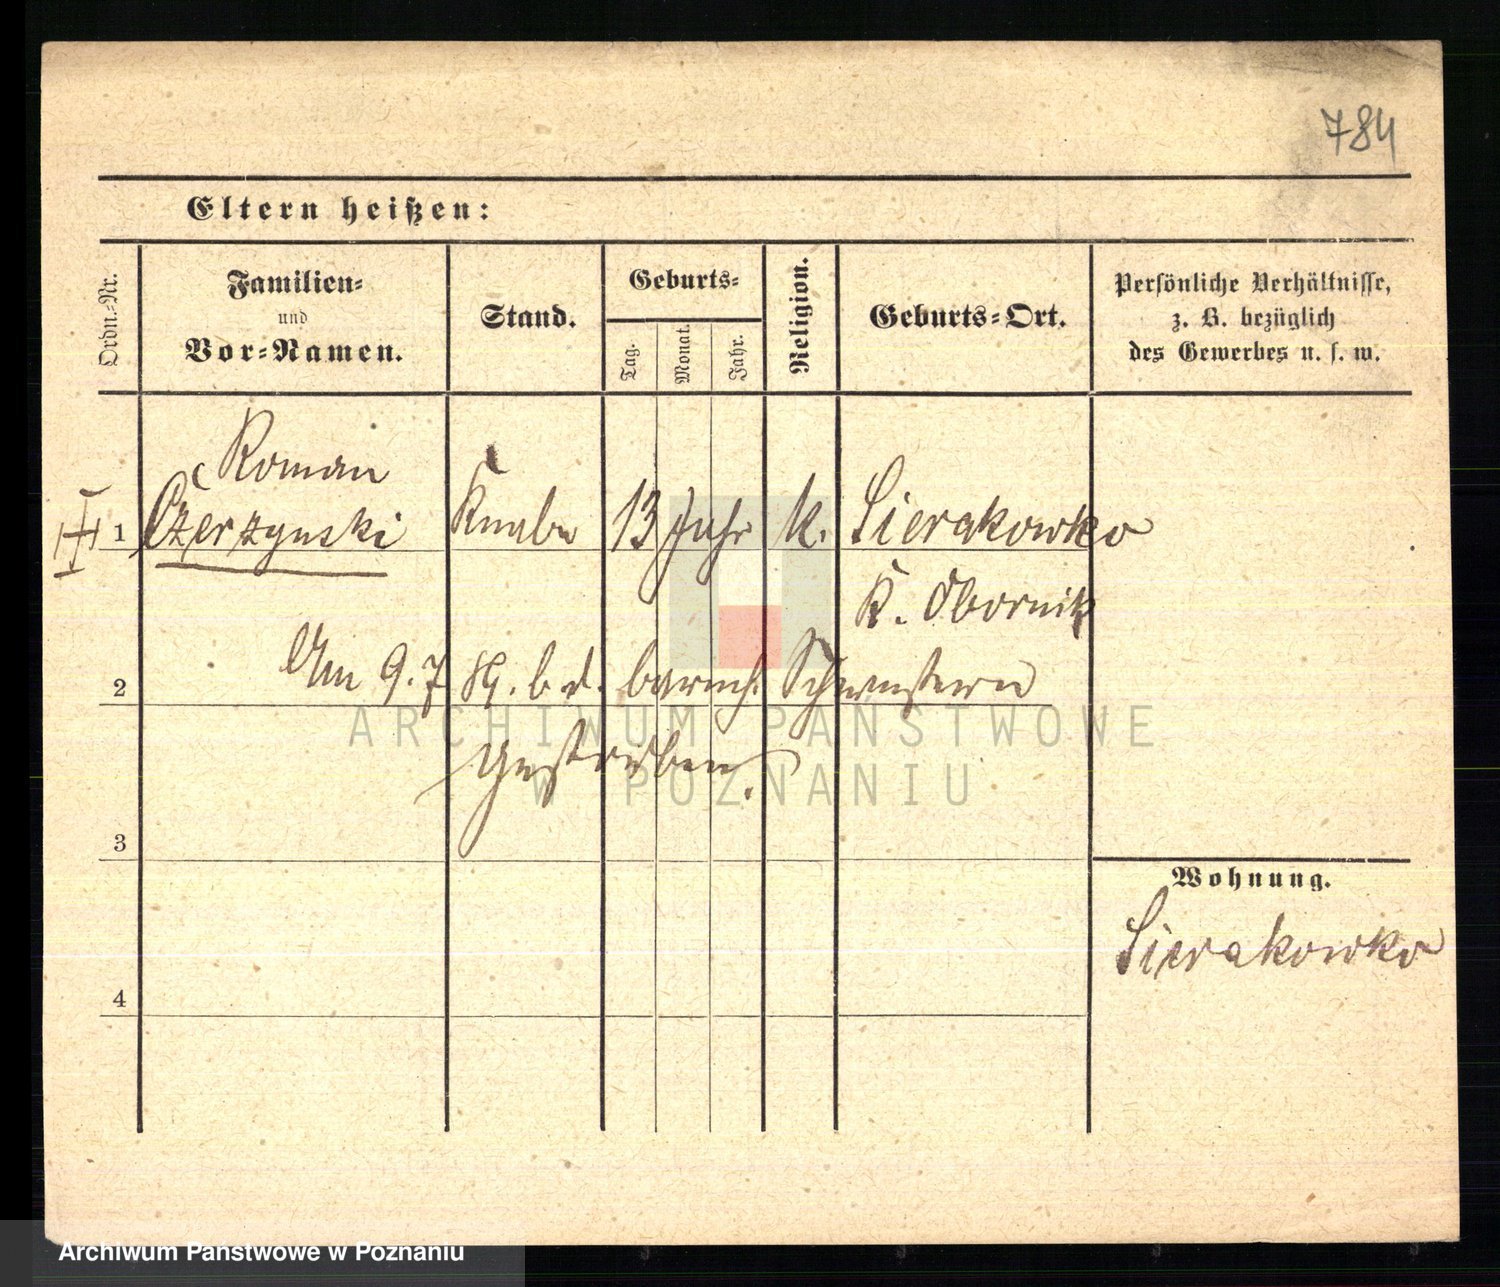 784
Eltern heißen:
Ordn.-Nr.
Familien-
und
Vor-Namen.
Stand.
Geburts-
Tag.
Monat.
Jahr.
Religion.
Geburts-Ort.
Persönliche Verhältnisse,
z. B. bezüglich
des Gewerbes u. s. w.
Roman
III 1 Czerzynski Knabe 13 Jahr k. Sierakowko
K. Obornik
2 Am 9.7 89. b. d. barmh. Schwestern
gestorben.
3
Wohnung.
Sierakowko
4
ARCHIWUM PAŃSTWOWE
W POZNANIU
Archiwum Państwowe w Poznaniu